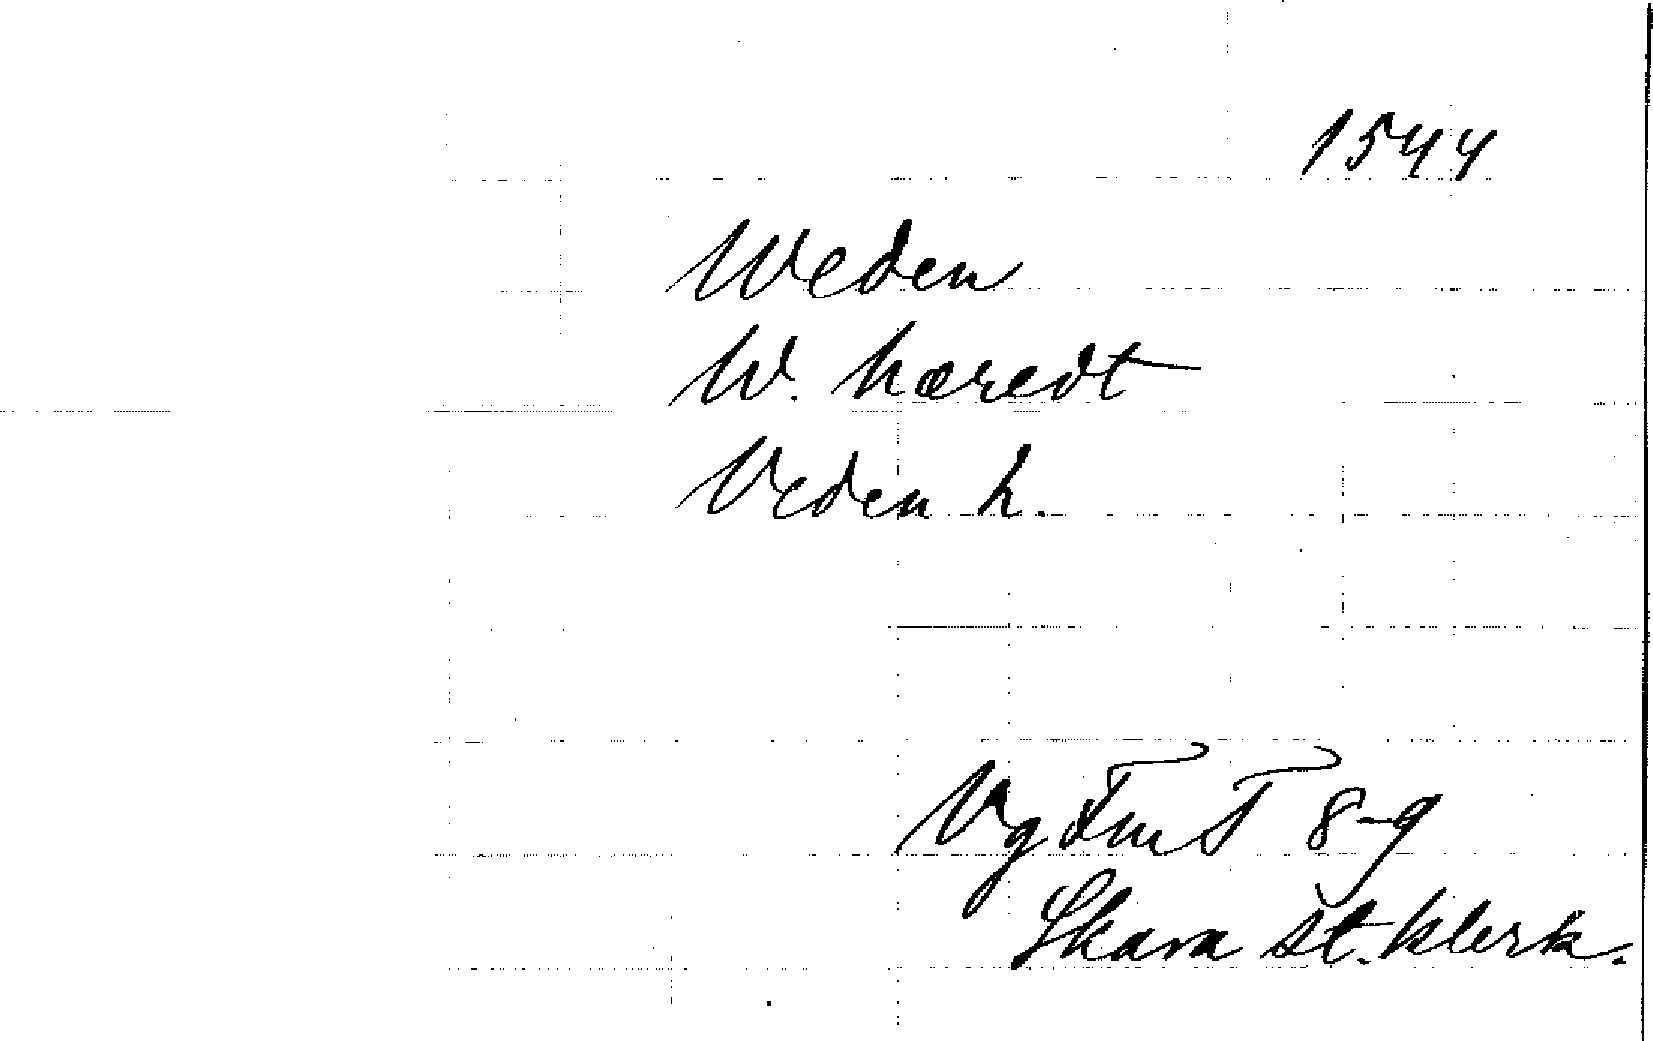 1544
Weden
W. hæredt
Veden h.
Vg Fm T 8-9
Skara st. klerk.